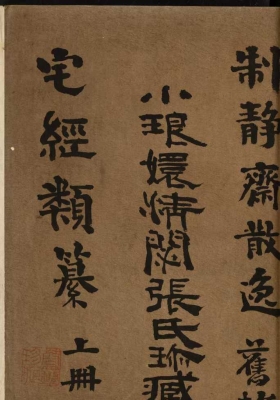 制静齋散逸舊
小琅嬛清閟張氏珍藏
宅經類纂 上冊